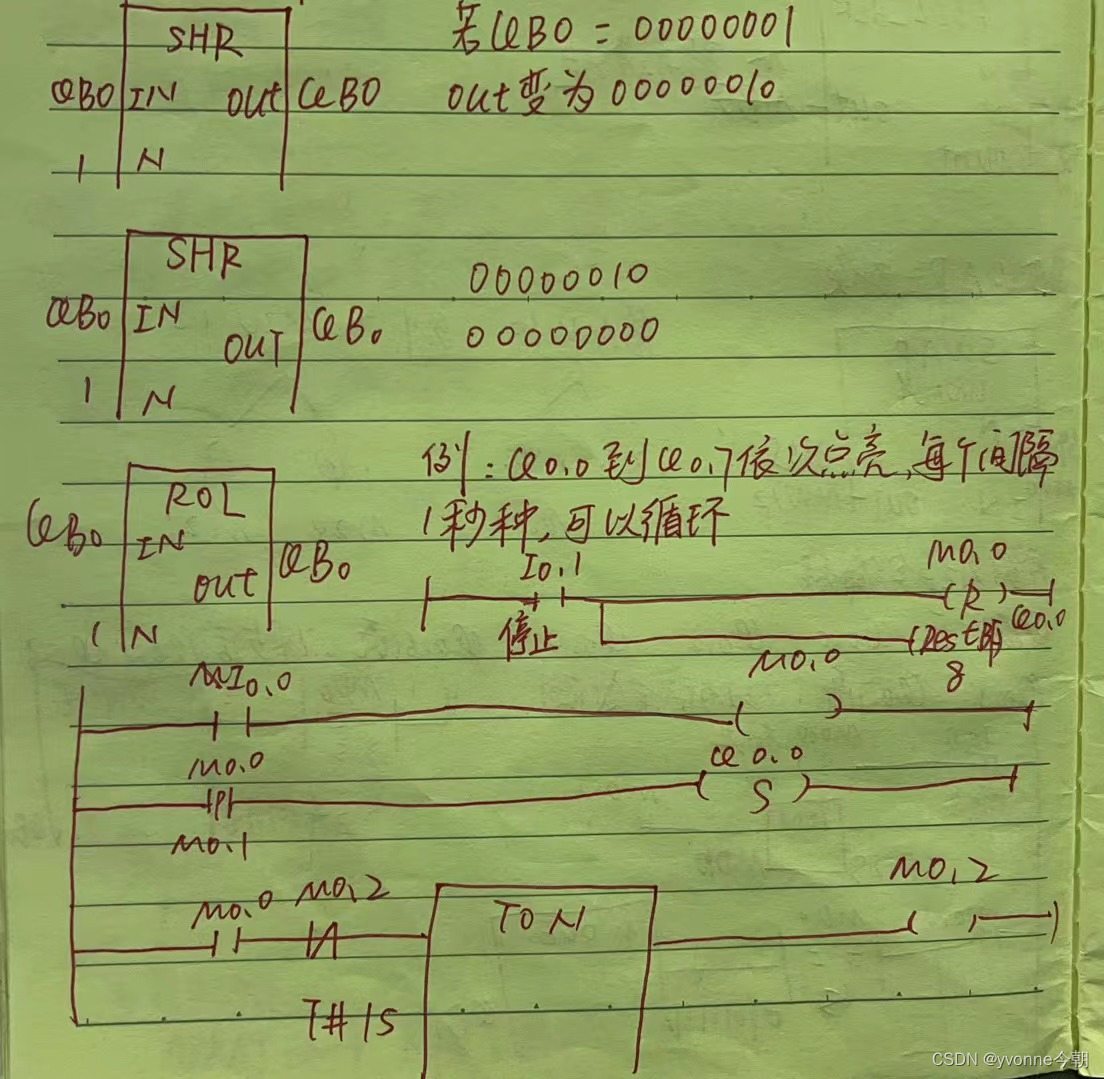 SHR 若QB0 = 00000001
QB0 IN OUT QB0 OUT变为 00000010
1 N
SHR 00000010
QB0 IN QB0 00000000
OUT
1 N
例:Q0.0到Q0.7依次点亮,每个间隔
ROL 1秒种,可以循环
QB0 IN OUT QB0
1 N
I0.1 M0.0
停止 (R) Q0.0
8
I0.0 M0.0
( )
M0.0 Q0.0
P S
M0.1
M0.0 M0.2 TON M0.2
T#1S
CSDN @yvonne今朝